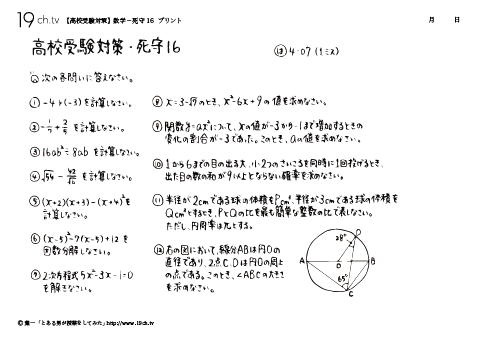 19ch.tv 【高校受験対策】数学－死守16 プリント 月 日
高校受験対策・死守16
は 4:07 (1ミス)
Q. 次の各問いに答えなさい。
① -4+(-3)を計算しなさい。
を計算しなさい。
③ 16ab²÷8ab を計算しなさい。
を計算しなさい。
⑤ (x+2)(x+3)-(x+4)²を
計算しなさい。
⑥ (x-5)²-7(x-5)+12 を
因数分解しなさい。
⑦ 2次方程式5x²-3x-1=0
を解きなさい。
⑧ のとき、x²-6x+9の値を求めなさい。
⑨ 関数y=ax²について、xの値が-3から-1まで増加するときの
変化の割合が-3であった。このとき、aの値を求めなさい。
⑩ 1から6までの目の出る大、小2つのさいころを同時に1回投げるとき、
出た目の数の和が9以上とならない確率を求めなさい。
⑪ 半径が2cmである球の体積をPcm³、半径が3cmである球の体積を
Qcm³とするとき、PとQの比を最も簡単な整数の比で表しなさい。
ただし、円周率はπとする。
⑫ 右の図において、線分ABは円Oの
直径であり、2点C,Dは円Oの周上
の点である。このとき、∠ABCの大きさ
を求めなさい。
D
28°
A
O
B
65°
C
©葉一「とある男が授業をしてみた」http://www.19ch.tv